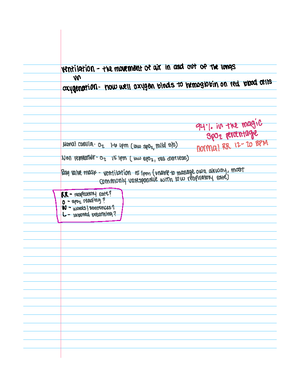 Ventilation - the movement of air in and out of the lungs
vs
oxygenation - how well oxygen binds to hemoglobin on red blood cells
94% is the magic
SpO₂ percentage
normal RR 12-20 BPM
Nasal canula - O₂ 1-6 lpm (low SpO₂ mild
Non rebreather - O₂ 15 lpm (low SpO₂,
Bag valve mask - ventilation 15 lpm (unable to manage own airway, most
commonly unresponsive with slow respiratory rate)
RR - respiratory rate?
O - SpO₂ reading?
W - words/sentences?
L - labored breathing?